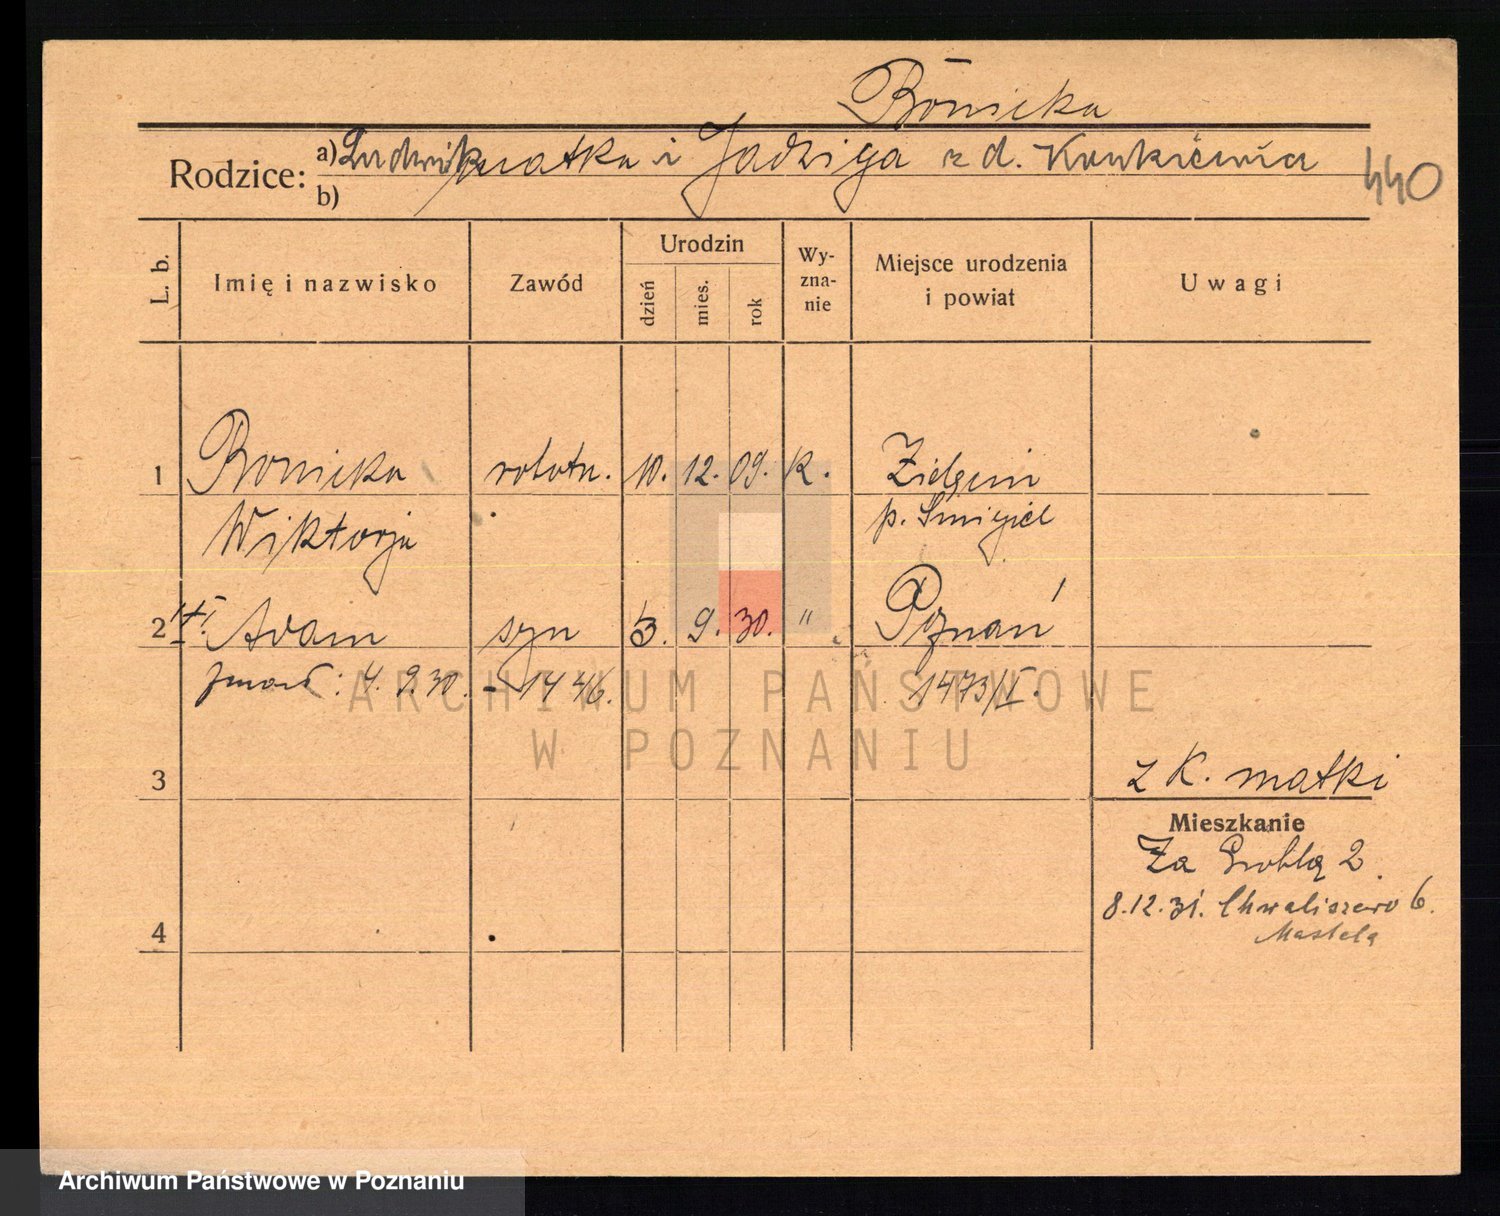 Bönicka
Rodzice: a) Ludwik matka i Jadwiga z d.
440
b)
L. b.
Imię i nazwisko
Zawód
Urodzin
dzień
mies.
rok
Wy-
zna-
nie
Miejsce urodzenia
i powiat
Uwagi
1 Bonicka robotn. 10. 12. 09. K.
Wiktorja p. Śmigiel
2 Adam syn 3. 9. 30. " Poznań
zmarł: 4. 9. 30. - 1446. 1473/I.
3 z K. matki
Mieszkanie
Za Groblą 2.
8.12.31. Chwaliszewo 6.
4
ARCHIWUM PAŃSTWOWE
W POZNANIU
Archiwum Państwowe w Poznaniu